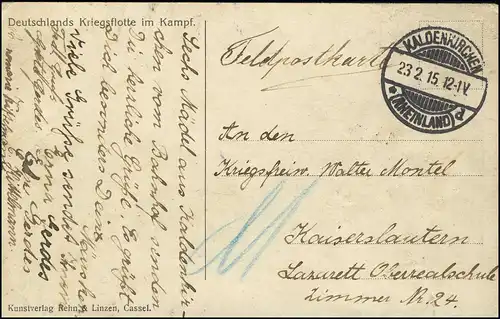 Deutschlands Kriegsflotte im Kampf.
Feldpostkarte
KALDENKIRCHEN
23.2.15.12-1V.
*(RHEINLAND) d
An den
Kriegsfreiw. Walter Montel
Kaiserslautern
Lazarett Oberrealschule
Zimmer Nr. 24.
Sechs Mädel aus Kaldenkir-
chen vom Bahnhof senden
Dir herzliche Grüße. Es grüßt
Dich besonders Deine
Viele Grüße sendet
Erna Gerdes
Kunstverlag Rehn & Linzen, Cassel.